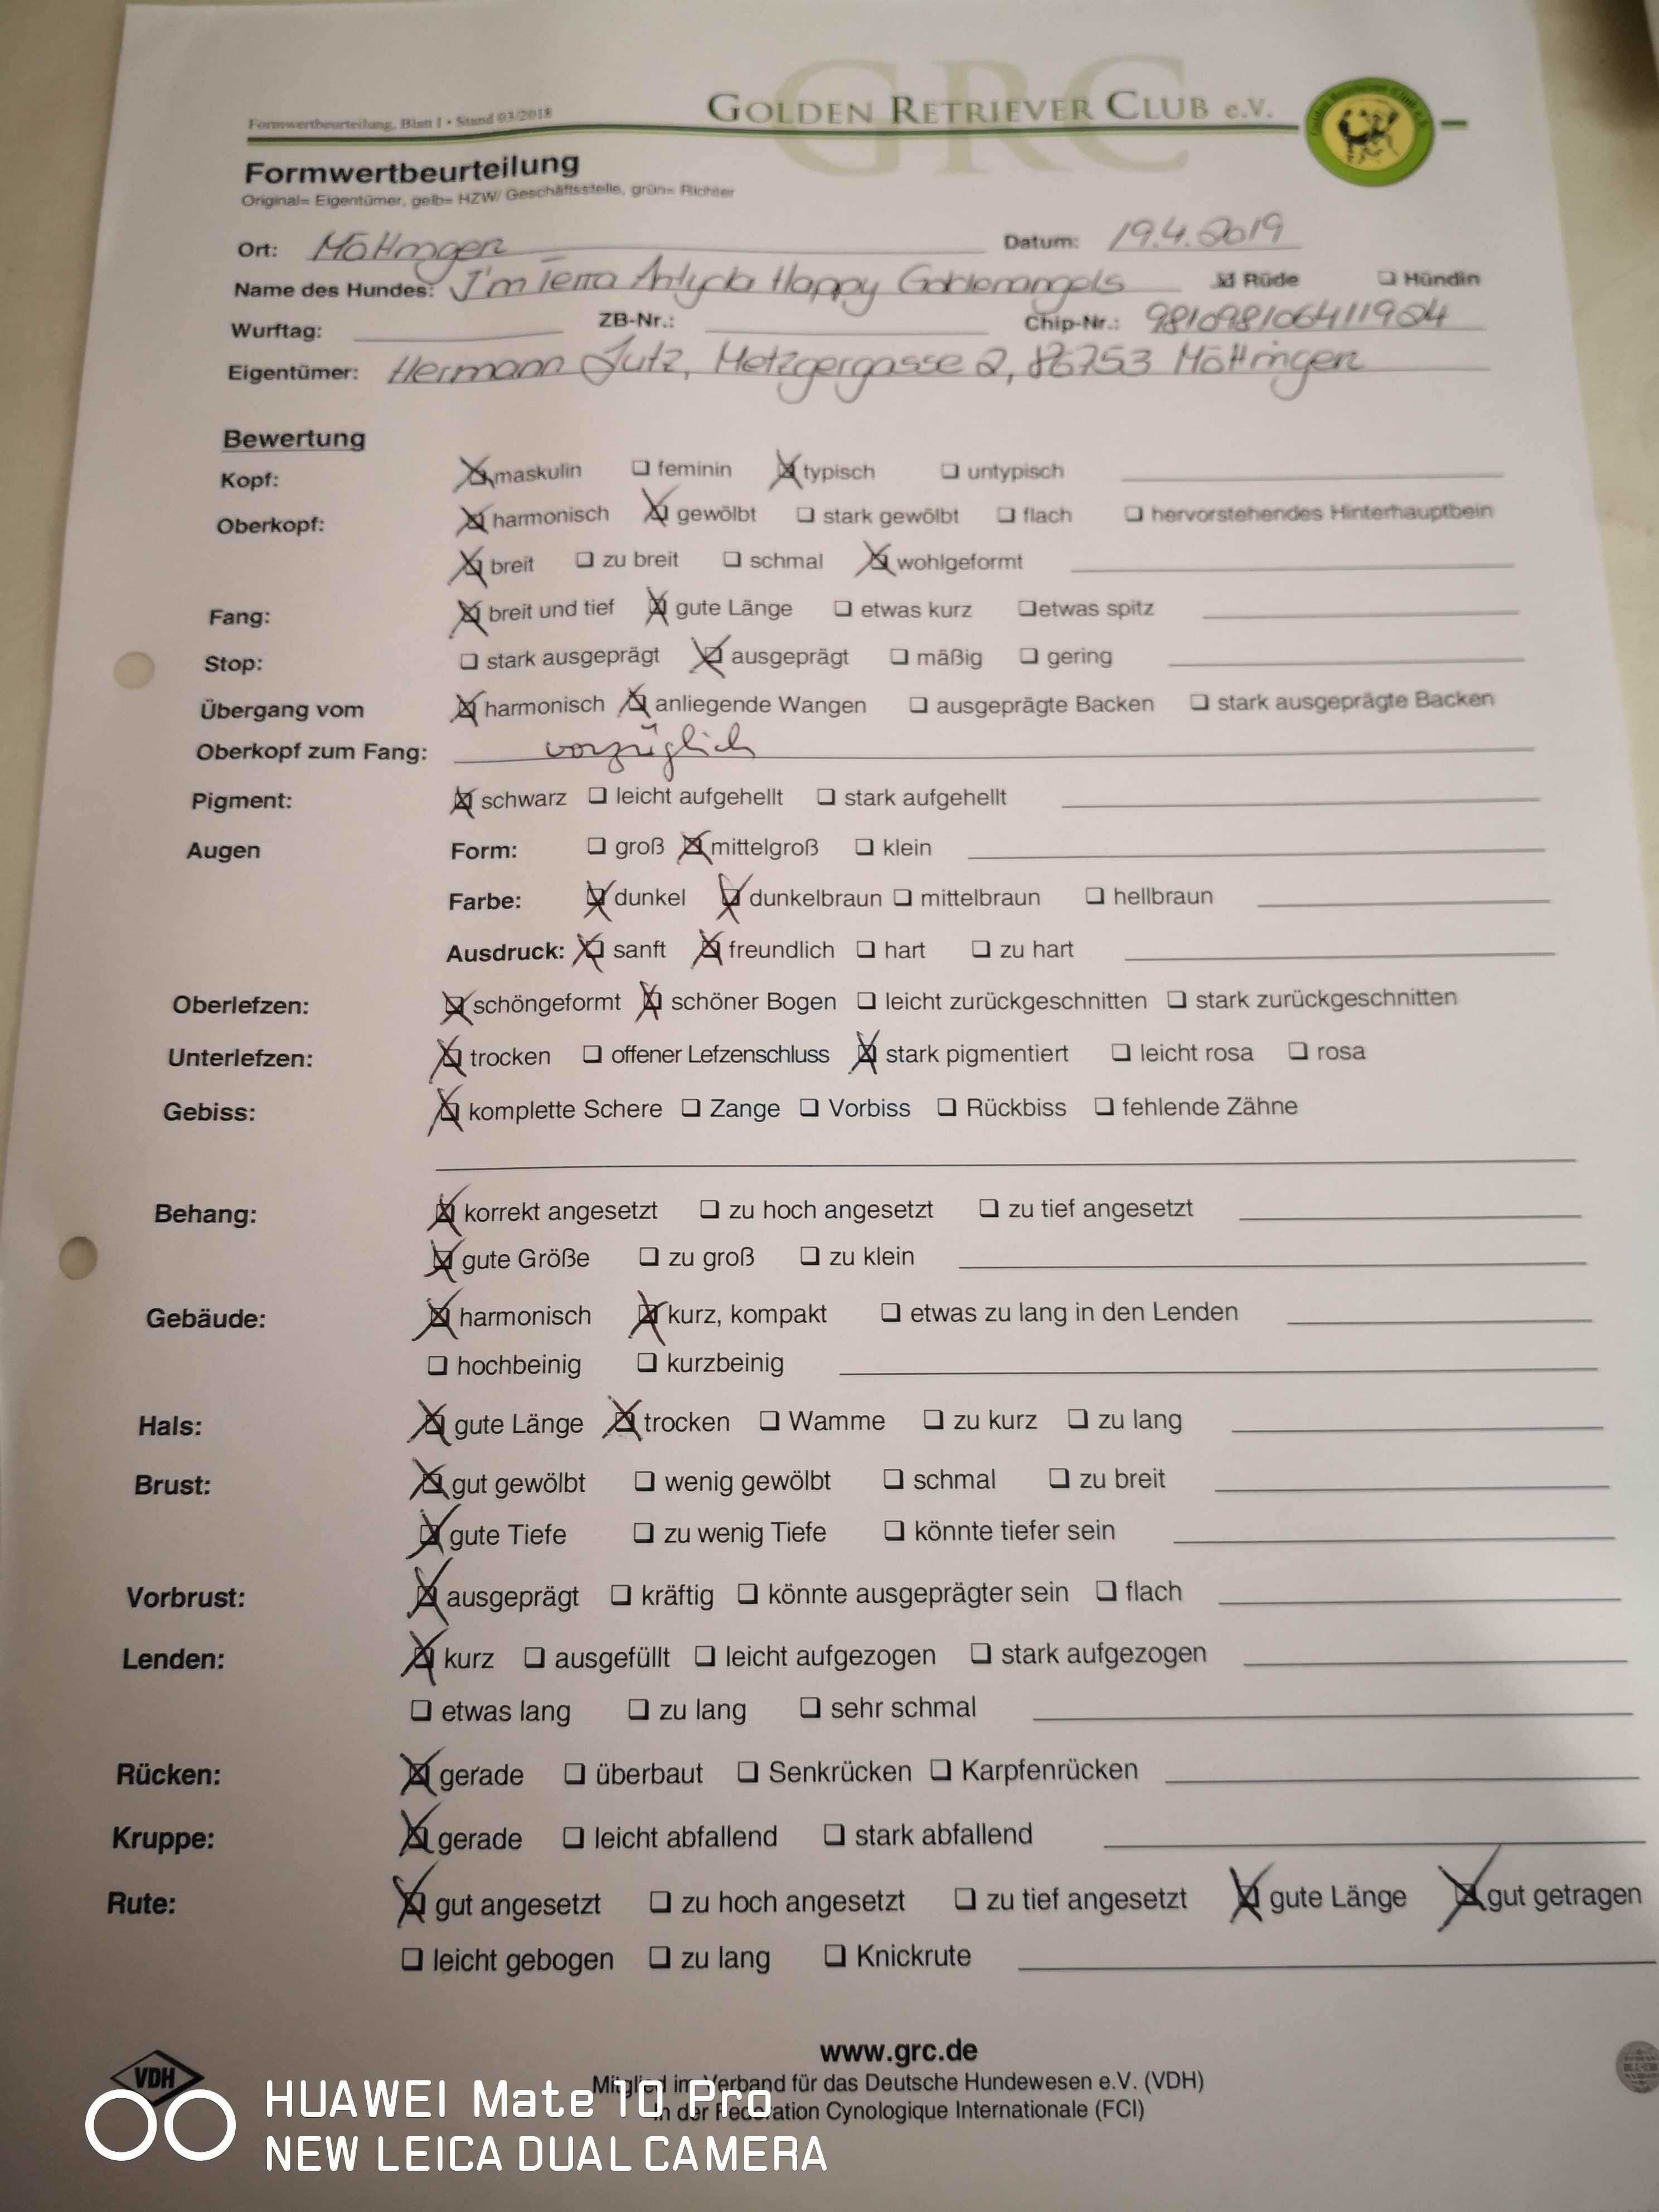 GRC
Formwertbeurteilung, Blatt 1 • Stand 03/2018
GOLDEN RETRIEVER CLUB e.V.
Formwertbeurteilung
Original= Eigentümer, gelb= HZW/ Geschäftsstelle, grün= Richter
Ort: Möttingen Datum: 19.4.2019
Name des Hundes: I'm Terra Antyda Happy Goldenangels ☒ Rüde ❑ Hündin
Wurftag: ZB-Nr.: Chip-Nr.: 981098106411924
Eigentümer: Hermann Jutz, Metzgergasse 2, 86753 Möttingen
Bewertung
Kopf: ☒ maskulin ❑ feminin ☒ typisch ❑ untypisch
Oberkopf: ☒ harmonisch ☒ gewölbt ❑ stark gewölbt ❑ flach ❑ hervorstehendes Hinterhauptbein
☒ breit ❑ zu breit ❑ schmal ☒ wohlgeformt
Fang: ☒ breit und tief ☒ gute Länge ❑ etwas kurz ❑ etwas spitz
Stop: ❑ stark ausgeprägt ☒ ausgeprägt ❑ mäßig ❑ gering
Übergang vom ☒ harmonisch ☒ anliegende Wangen ❑ ausgeprägte Backen ❑ stark ausgeprägte Backen
Oberkopf zum Fang: vorzüglich
Pigment: ☒ schwarz ❑ leicht aufgehellt ❑ stark aufgehellt
Augen Form: ❑ groß ☒ mittelgroß ❑ klein
Farbe: ☒ dunkel ☒ dunkelbraun ❑ mittelbraun ❑ hellbraun
Ausdruck: ☒ sanft ☒ freundlich ❑ hart ❑ zu hart
Oberlefzen: ☒ schöngeformt ☒ schöner Bogen ❑ leicht zurückgeschnitten ❑ stark zurückgeschnitten
Unterlefzen: ☒ trocken ❑ offener Lefzenschluss ☒ stark pigmentiert ❑ leicht rosa ❑ rosa
Gebiss: ☒ komplette Schere ❑ Zange ❑ Vorbiss ❑ Rückbiss ❑ fehlende Zähne
Behang: ☒ korrekt angesetzt ❑ zu hoch angesetzt ❑ zu tief angesetzt
☒ gute Größe ❑ zu groß ❑ zu klein
Gebäude: ☒ harmonisch ☒ kurz, kompakt ❑ etwas zu lang in den Lenden
❑ hochbeinig ❑ kurzbeinig
Hals: ☒ gute Länge ☒ trocken ❑ Wamme ❑ zu kurz ❑ zu lang
Brust: ☒ gut gewölbt ❑ wenig gewölbt ❑ schmal ❑ zu breit
☒ gute Tiefe ❑ zu wenig Tiefe ❑ könnte tiefer sein
Vorbrust: ☒ ausgeprägt ❑ kräftig ❑ könnte ausgeprägter sein ❑ flach
Lenden: ☒ kurz ❑ ausgefüllt ❑ leicht aufgezogen ❑ stark aufgezogen
❑ etwas lang ❑ zu lang ❑ sehr schmal
Rücken: ☒ gerade ❑ überbaut ❑ Senkrücken ❑ Karpfenrücken
Kruppe: ☒ gerade ❑ leicht abfallend ❑ stark abfallend
Rute: ☒ gut angesetzt ❑ zu hoch angesetzt ❑ zu tief angesetzt ☒ gute Länge ☒ gut getragen
❑ leicht gebogen ❑ zu lang ❑ Knickrute
www.grc.de
VDH
Mitglied im Verband für das Deutsche Hundewesen e.V. (VDH)
In der Federation Cynologique Internationale (FCI)
HUAWEI Mate 10 Pro
NEW LEICA DUAL CAMERA